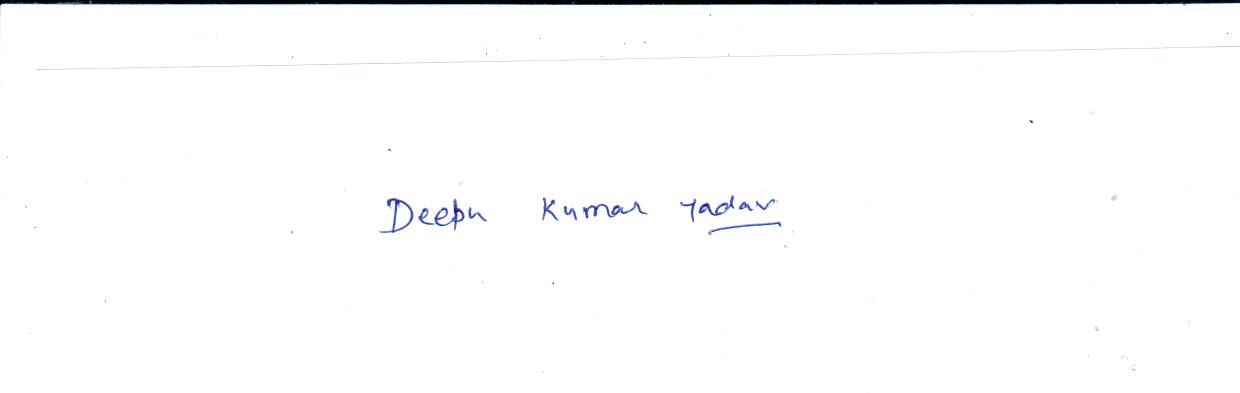 Deepu Kumar Yadav